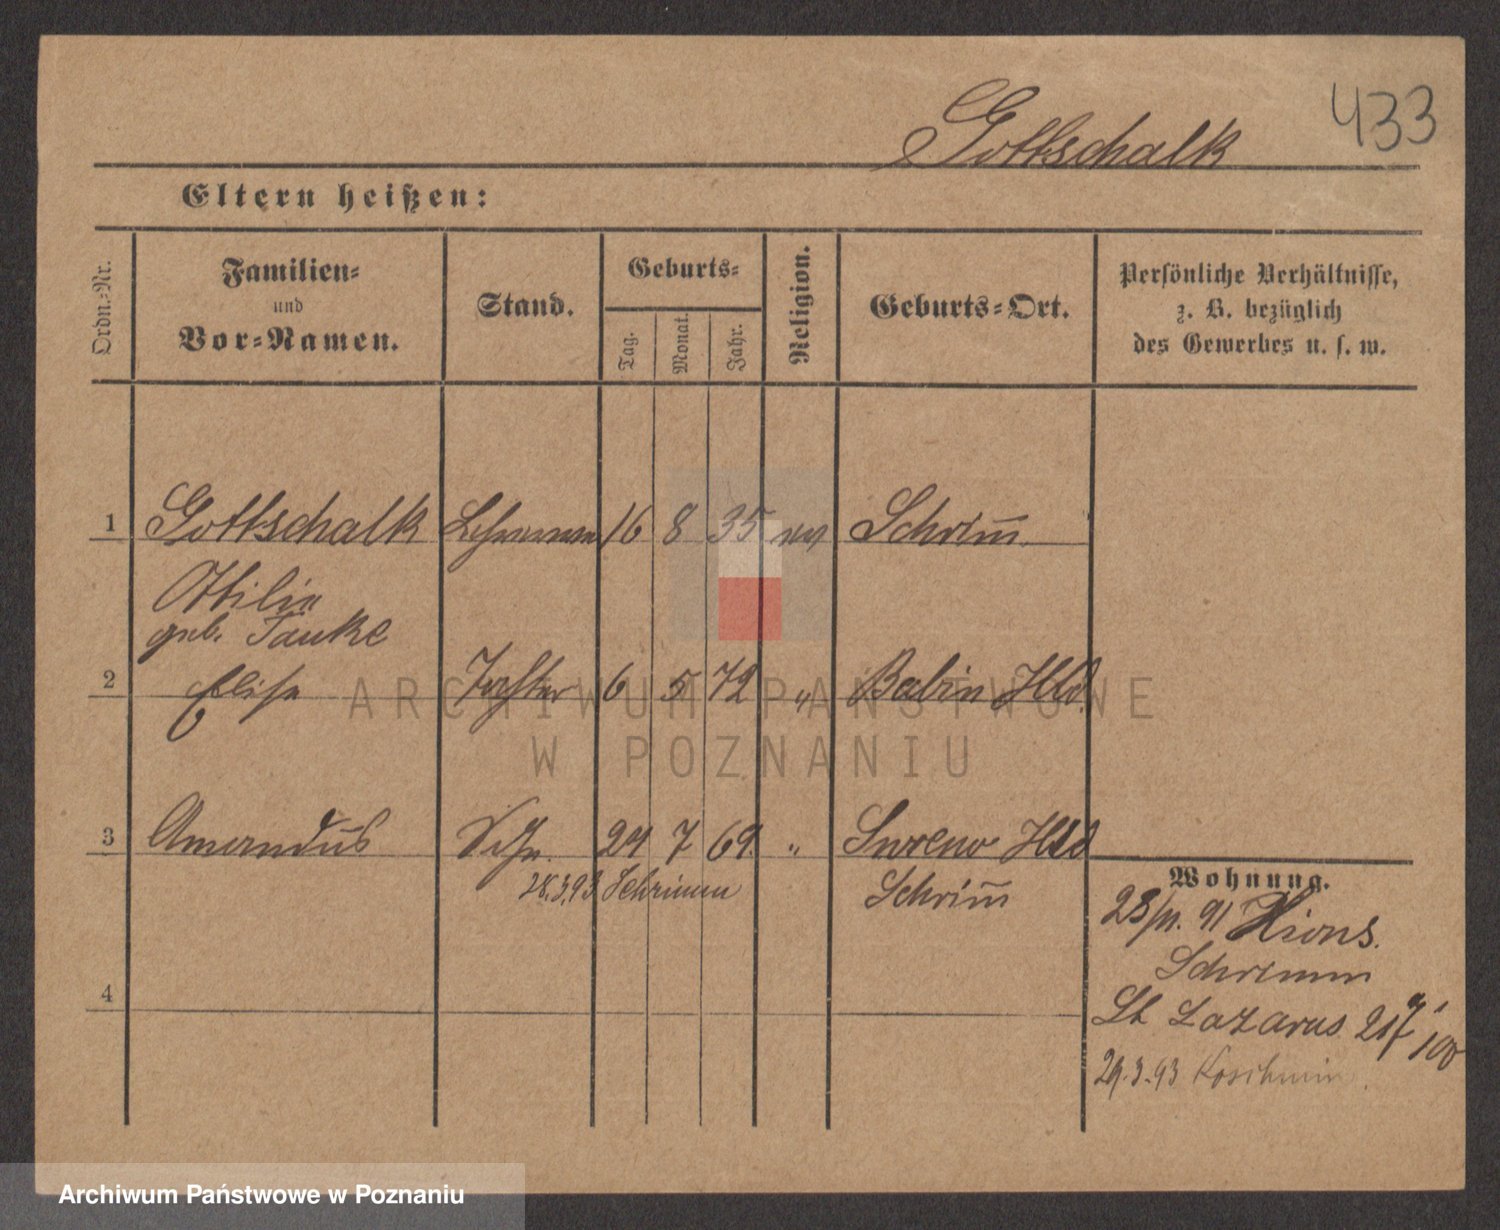 433
Gottschalk
Eltern heißen:
Ordn.-Nr.
Familien- und Vor-Namen.
Stand.
Geburts-
Tag.
Monat.
Jahr.
Religion.
Geburts-Ort.
Persönliche Verhältnisse,
z. B. bezüglich
des Gewerbes u. s. w.
1 Gottschalk 16 8 35 ev Schrim̄
Ottilie
geb. Tauke
2 Elise Tochter 6 5 72 " Babin Hld.
3 Amandus Sohn. 24 7 69. " Hld
28.3.93. Schrimm
Schrim̄
Wohnung.
91 Xions.
Schrimm
4
St Lazarus
29.3.93 Koschmin.
ARCHIWUM PAŃSTWOWE
W POZNANIU
Archiwum Państwowe w Poznaniu